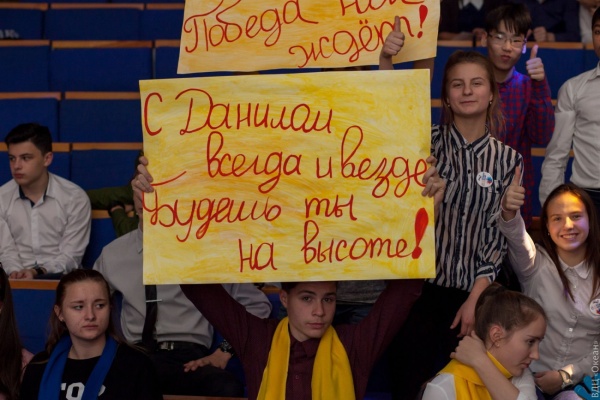 Победа нас
ждёт!
С Данилой
всегда и везде
Будешь ты
на высоте!
ВДЦ «Океан»